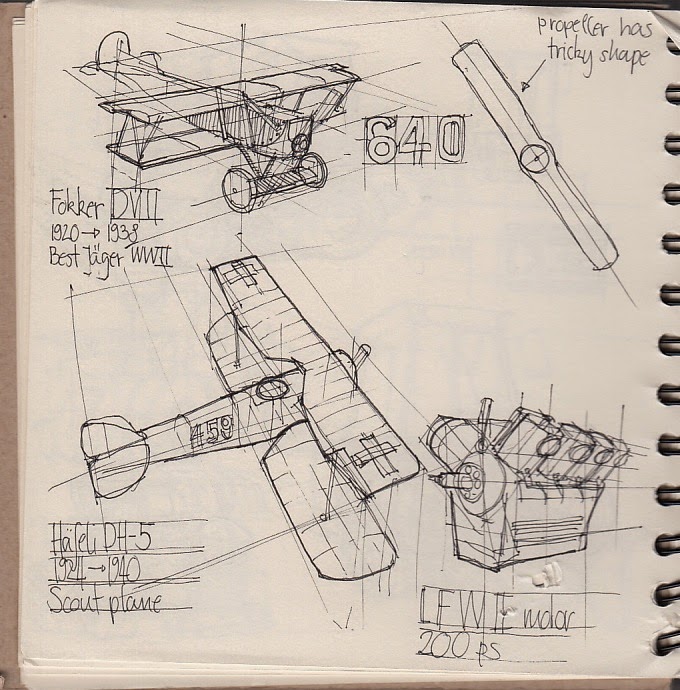 propeller has
tricky shape
640
Fokker DVII
1920→1938
Best Jäger WWII
459
Häfeli DH-5
1924→1940
Scout plane
LFW II motor
200 ps